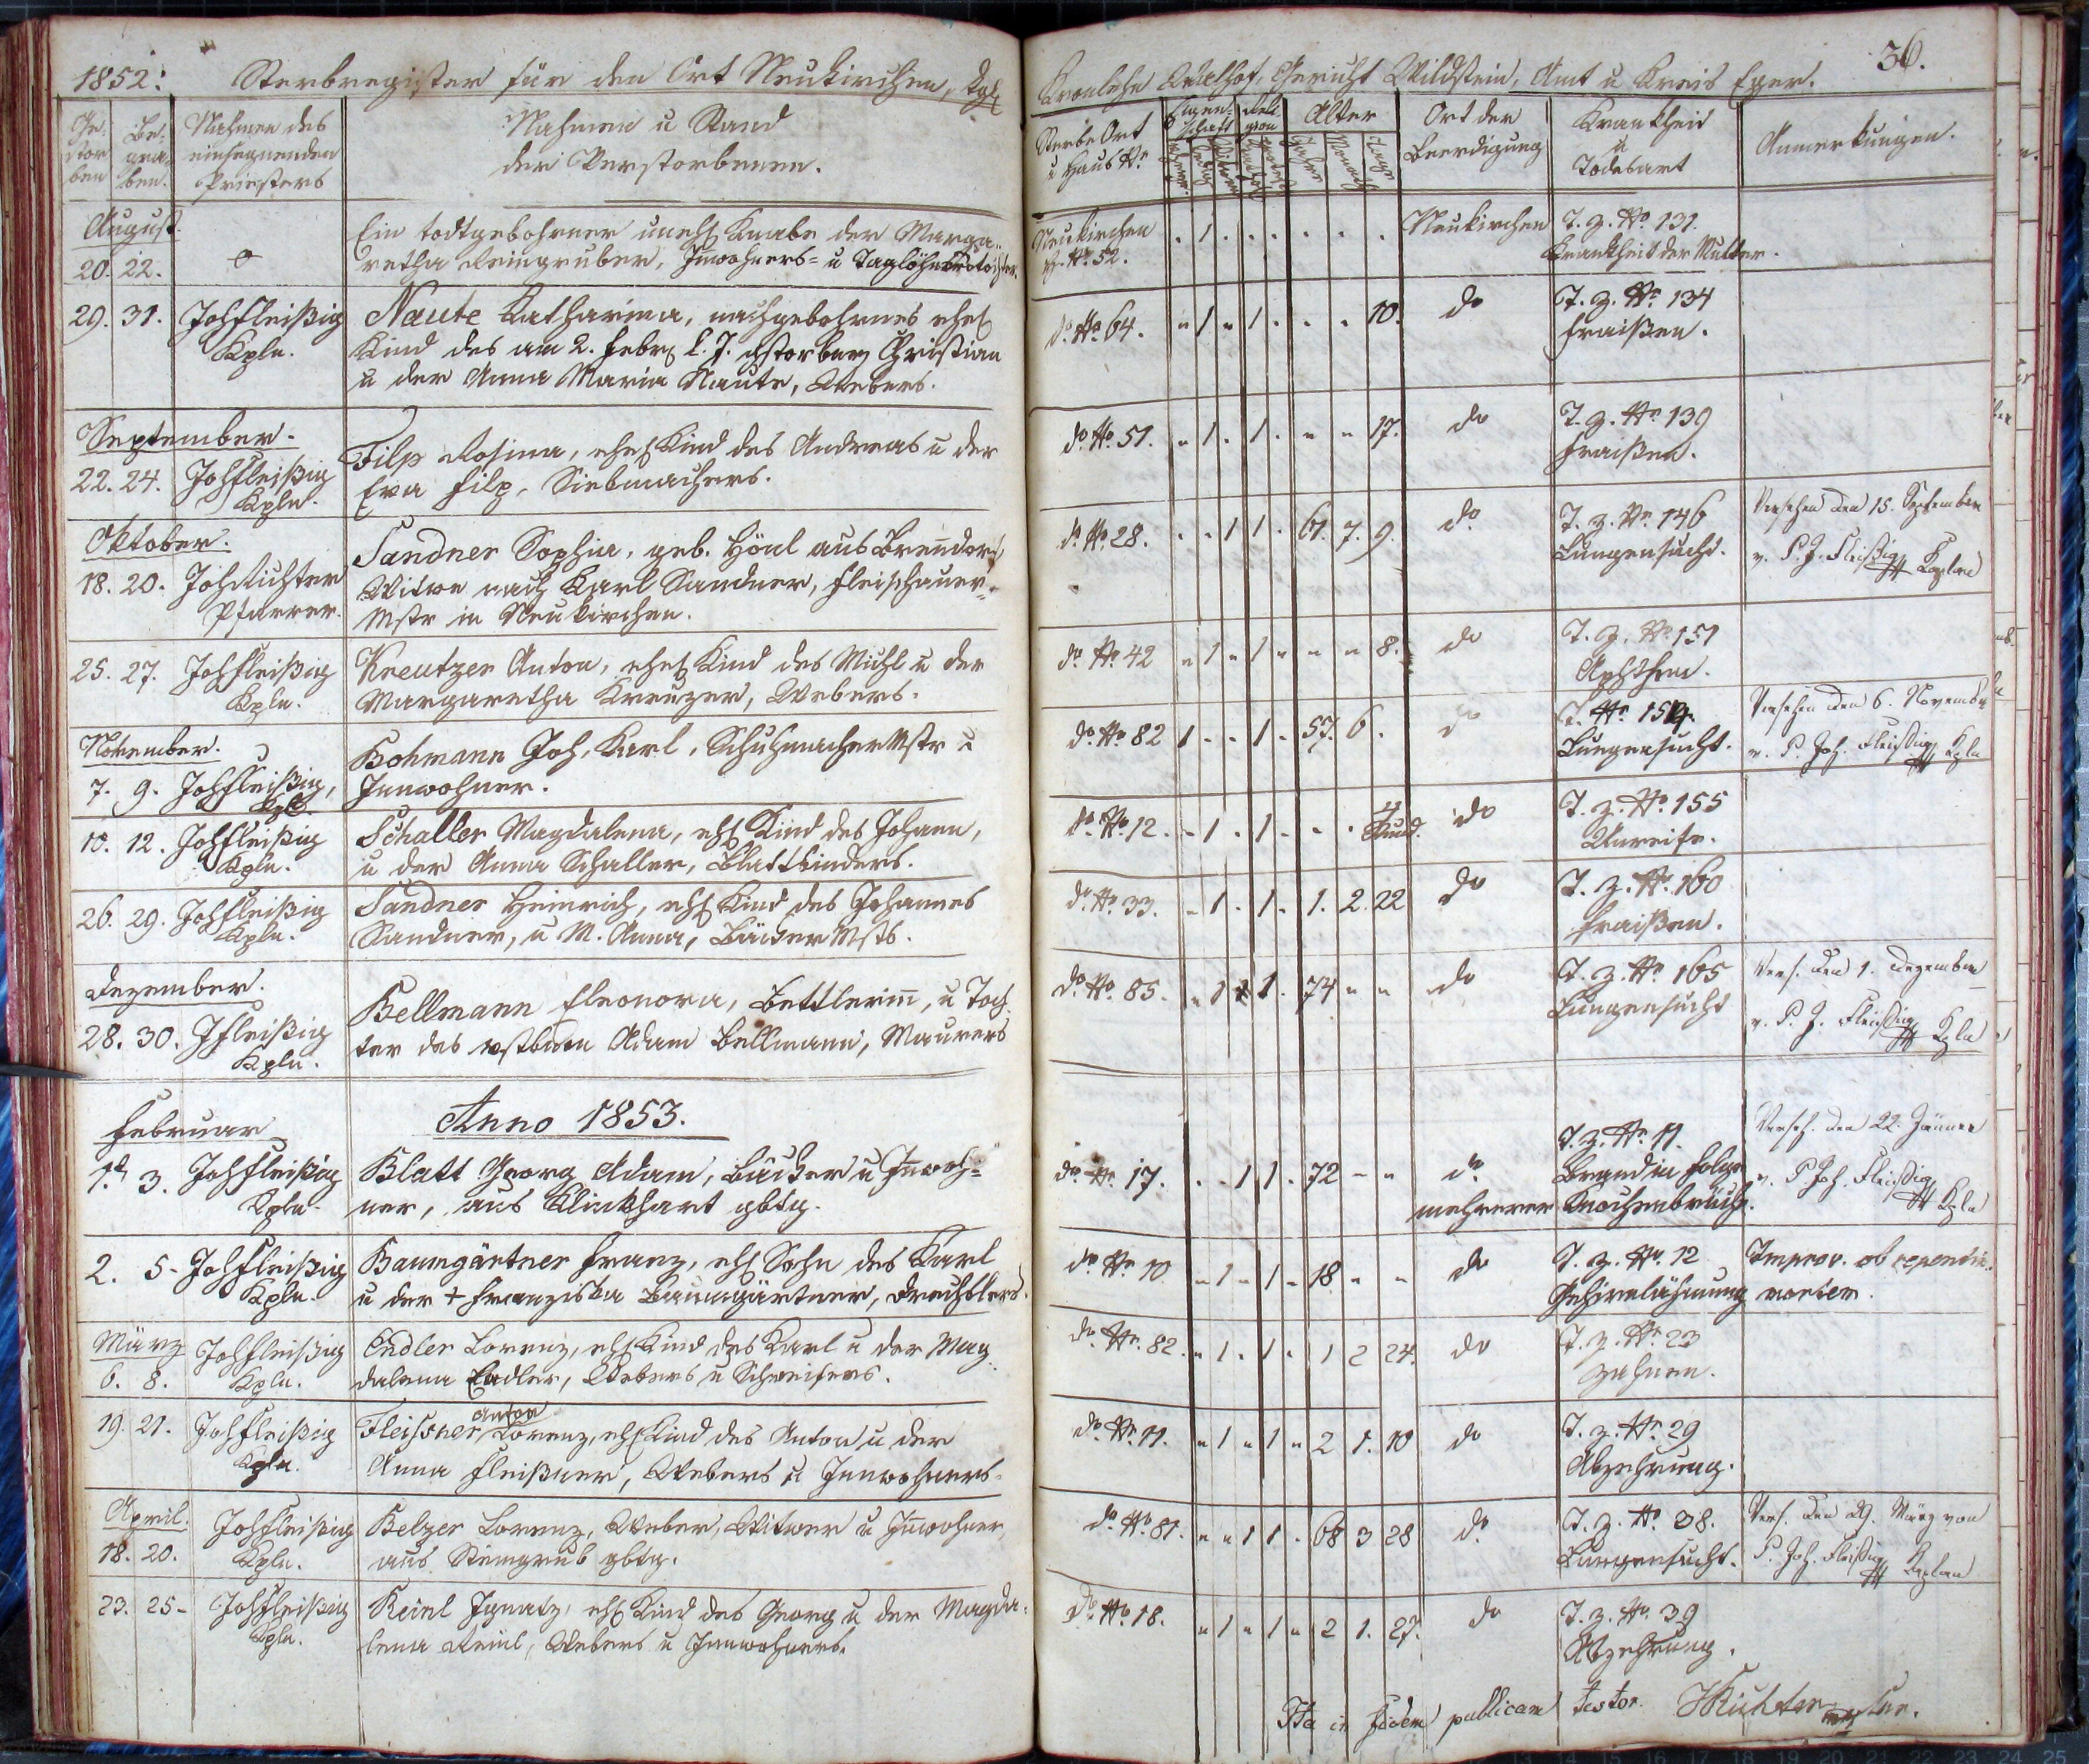 1852. Sterbregister für den Ort Neukirchen,
Ge-
stor
ben
Be-
gra-
ben.
Nahmen des
einsegnenden
Priesters
Nahmen u Stand
der Verstorbenen.
August.
20. 22.
Ein todtgebohrner unehl Knabe der Marga-
retha Reingruber, Inwohners- u Taglöhnerstochter.
29. 31. Joh Fleißig
Kpln.
Naute Katharina, nachgebohrnes ehel
Kind des am 2. Febr l. J. Christian
u der Anna Maria Naute, Webers.
September.
22. 24. Joh Fleißig
Kpln.
Filp Rosina, ehel Kind des Andreas u der
Eva Filp, Siebmachers.
Oktober.
18. 20. Joh Richter
Pfarrer.
Sandner Sophia, geb. Hönl aus
Witwe nach Karl Sandner, Fleischauer-
Mstr in Neukirchen.
25. 27. Joh Fleißig
Kpln.
Kreutzer Anton, ehel Kind des Michl u der
Margaretha Kreuzer, Webers.
November.
7. 9. Joh Fleißig,
Kpl.
Hohmann Joh. Karl, Schuhmacher Mstr u
Innwohner.
10. 12. Joh Fleißig
Kpln.
Schaller Magdalena, ehl Kind des Johann,
u der Anna Schaller, Blattbinders.
26. 29. Joh Fleißig
Kpln.
Sandner Heinrich, ehl Kind des Johannes
Sandner, u M. Anna, Bäcker Msts.
Dezember.
28. 30. J Fleißig
Kpln.
Bellmann Eleonora, Bettlerin, u Toch
ter des vstbnen Adam Bellmann, Maurers
Anno 1853.
Februar
1. 3. Joh Fleißig
Kpln.
Blatt Georg Adam, Bäcker u Inwoh-
ner, aus Klinkhart gbtg.
2. 5- Joh Fleißig
Kpln.
Baumgärtner Franz, ehl Sohn des Karl
u der + Franziska Baumgärtner, Drechslers.
März
6. 8. Joh Fleißig
Kpln.
Endler Lorenz, ehl Kind des Karl u der Mag-
dalena Endler, Webers u Schweifers.
19. 21. Joh Fleißig
Kpln.
Anton
Fleissner Lorenz, ehl Kind des Anton u der
Anna Fleißner, Webers u Innwohners-
April.
18. 20. Joh Fleißig
Kpln.
Belzer Lorenz, Weber, Witwer u Inwohner
aus Steingrub gbtg.
23. 25- Joh Fleißig
Kpln.
Reinl Ignatz, ehl Kind des Georg u der Magda-
lena Reinl, Webers u Innwohners.
36.
Gericht Wildstein, Amt u Kreis Eger.
Sterbe Ort
u Haus Nr.
Eigen-
schaft
Reli
gion
Alter
Jahre
Monath
Tage
Ort der
Beerdigung
Krankheit
u
Todesart
Anmerkungen.
Neukirchen
H. No. 52. . 1 . . . . . . Neukirchen T. z. No. 131.
Krankheit der Mutter.
do No. 64. " 1 " 1 . . . 10. do T. z. No. 134
Fraißen.
do No. 51. " 1 . 1 . " " 17. do T. z. No. 139
Fraißen.
do No. 28. . . 1 1 . 61. 7. 9. do T. z. No. 146
Lungensucht.
Versehen den 15. September
v. P. J. Fleißig Kaplan
do No. 42 " 1 " 1 " " " 8. do T. z. No. 151
Aphthen.
do No. 82 1 . . 1 . 57. 6. do T. No. 154.
Lungensucht.
Versehen den 6. November
v. P. Joh. Fleißig Kpln
do No. 12. - 1 . 1 . . . 4
Stund. do T. z. No. 155
Unreife.
do No. 33. - 1 . 1 . 1. 2. 22 do T. z. No. 160
Fraißen.
do No. 85. " 1 1 . 74 " " do T. z. No. 165
Lungensucht
Vers. den 1. Dezember
v. P. J. Fleißig Kpln
do No. 17. . . 1 1 . 72 - " do T. z. No. 11.
Brand in Folge
mehrerer Knochenbrüche.
Verseh. den 22. Jänner
v. P Joh. Fleißig Kpln
do No. 10 - 1 - 1 - 18 " " do T. z. No. 12
Gehirnlähmung
Improv. ob
mortem.
do No. 82. " 1 . 1 . 1 2 24. do T. z. No. 23
Zahnen.
do No. 11. " 1 " 1 " 2 1. 10 do T. z. No. 29
Abzehrung.
do No. 81. " " 1 1 . 68 3 28 do T. z. No. 38.
Lungensucht.
Vers. den 29. März von
P. Joh. Fleißig Kaplan
do No. 18. " 1 " 1 " 2 1. 27. do T. z. No. 39
Abzehrung.
Ita in fidem publicam testor. J Richter